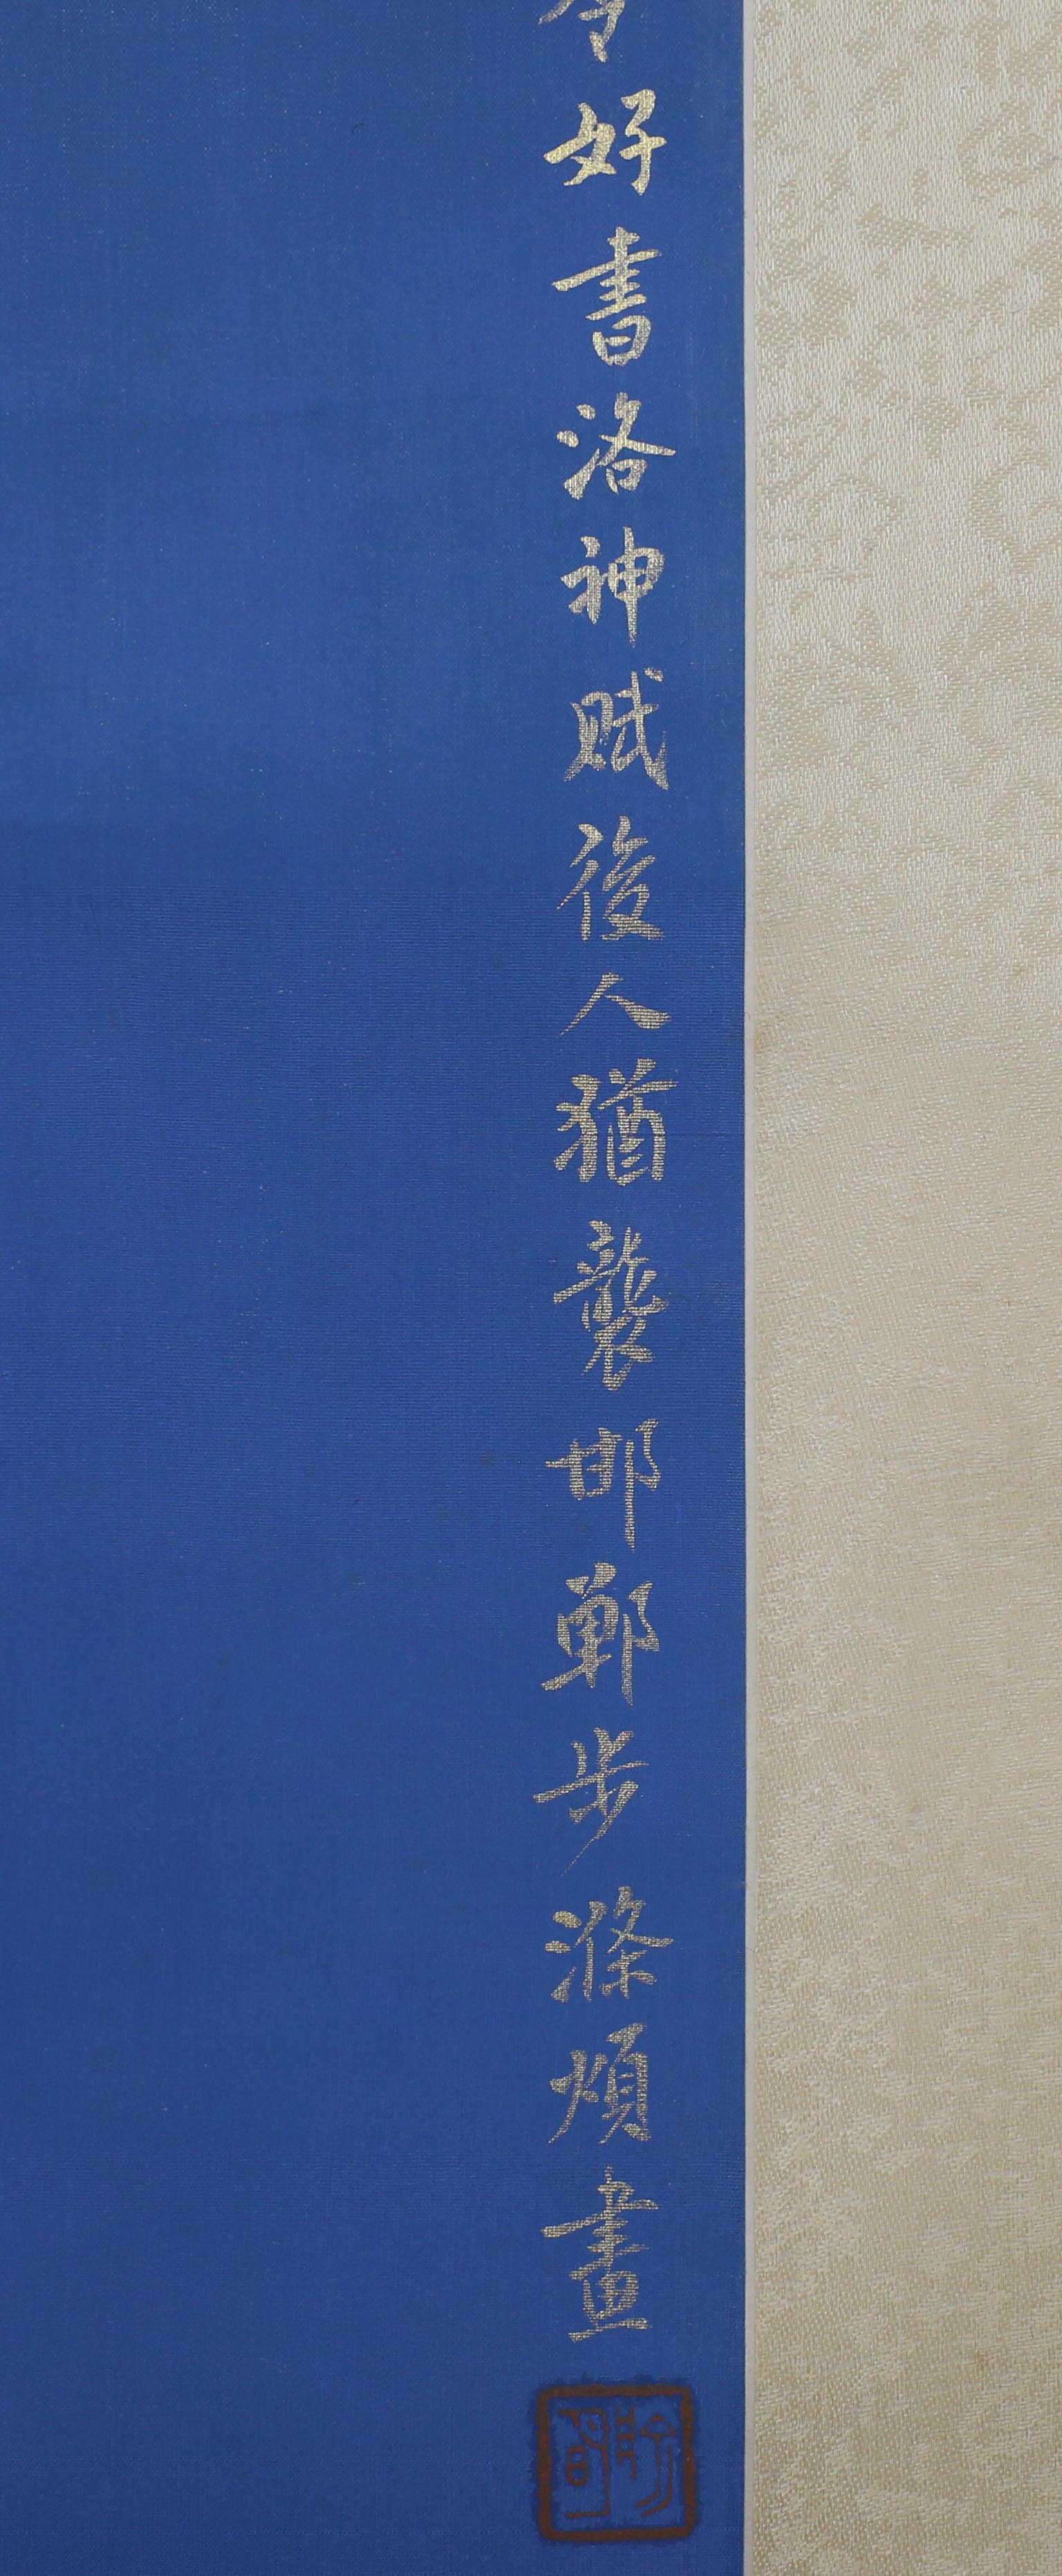 好書洛神賦後人猶襲邯鄲步滌煩畫